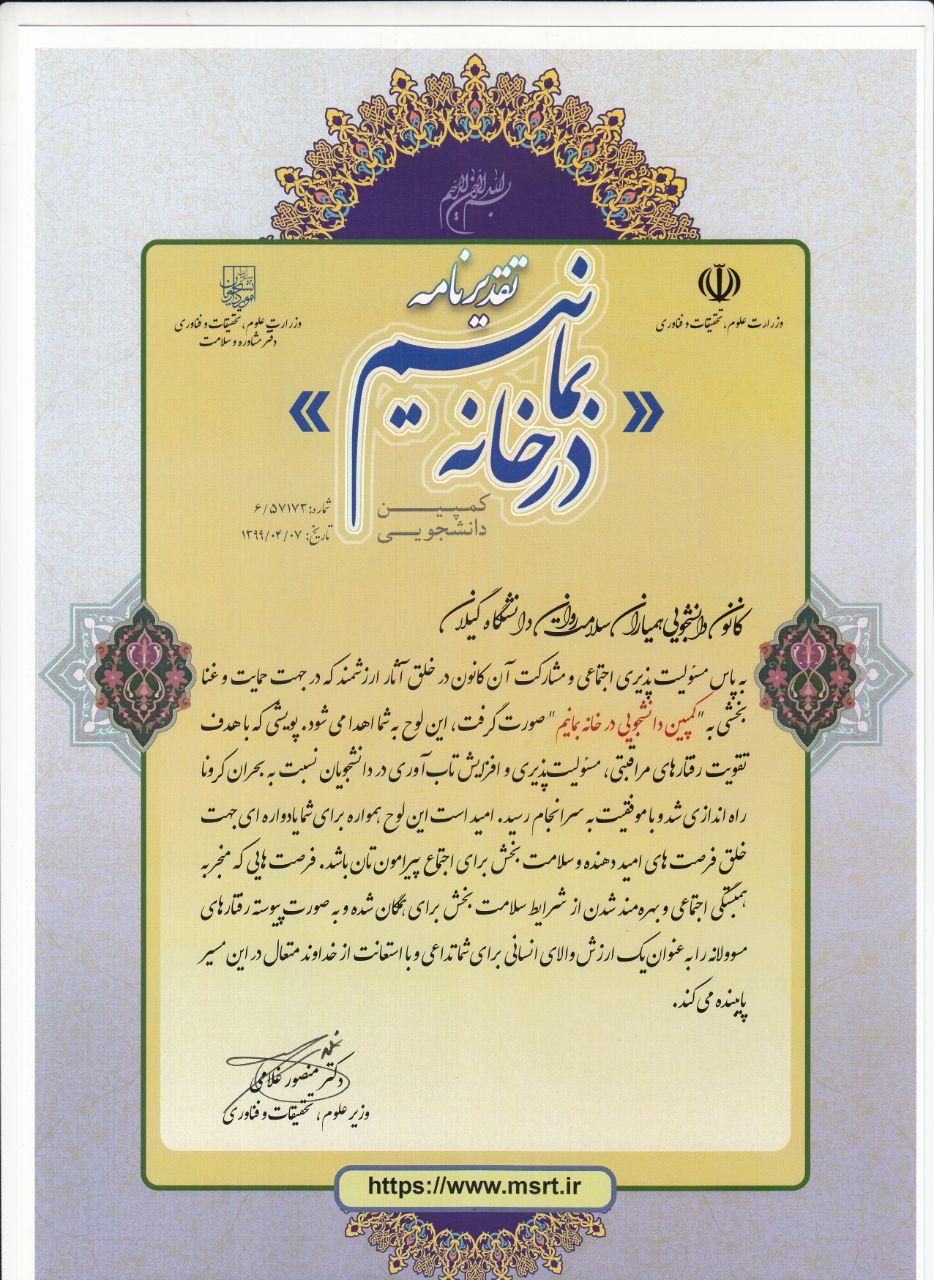 بسم الله الرحمن الرحیم
تقدیرنامه
وزارت علوم، تحقیقات و فناوری
وزارت علوم، تحقیقات و فناوری
دفتر مشاوره و سلامت
« در خانه بمانیم »
کمپین
دانشجویی
شماره: ۶/۵۷۱۷۳
تاریخ: ۱۳۹۹/۰۴/۰۷
کانون دانشجویی همیاران سلامت روان دانشگاه گیلان
به پاس مسئولیت پذیری اجتماعی و مشارکت آن کانون در خلق آثار ارزشمند که در جهت حمایت و غنا
بخشی به "کمپین دانشجویی در خانه بمانیم" صورت گرفت، این لوح به شما اهدا می شود. پویشی که با هدف
تقویت رفتارهای مراقبتی، مسئولیت‌پذیری و افزایش تاب‌آوری در دانشجویان نسبت به بحران کرونا
راه اندازی شد و با موفقیت به سرانجام رسید. امید است این لوح همواره برای شما یادواره ای جهت
خلق فرصت های امید دهنده و سلامت بخش برای اجتماع پیرامون‌تان باشد. فرصت هایی که منجر به
همبستگی اجتماعی و بهره مند شدن از شرایط سلامت بخش برای همگان شده و به صورت پیوسته رفتارهای
مسوولانه را به عنوان یک ارزش والای انسانی برای شما تداعی و با استعانت از خداوند متعال در این مسیر
پاینده می کند.
دکتر منصور غلامی
وزیر علوم، تحقیقات و فناوری
https://www.msrt.ir